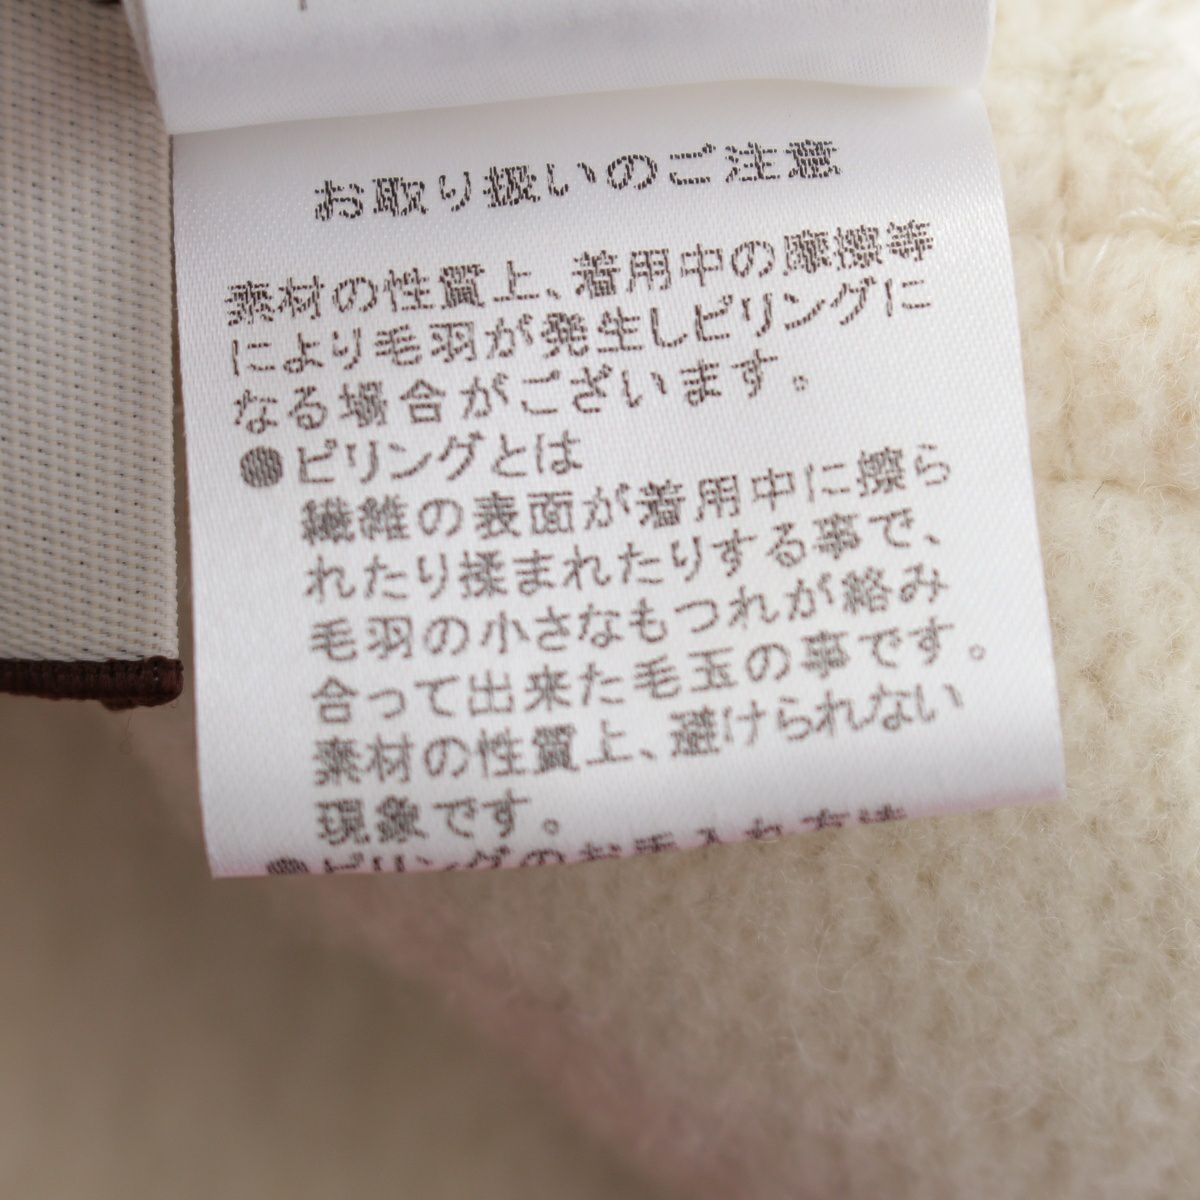 お取り扱いのご注意
素材の性質上、着用中の摩擦等
により毛羽が発生しピリングに
なる場合がございます。
●ピリングとは
繊維の表面が着用中に擦ら
れたり揉まれたりする事で、
毛羽の小さなもつれが絡み
合って出来た毛玉の事です。
素材の性質上、避けられない
現象です。
●ピリングのお手入れ方法